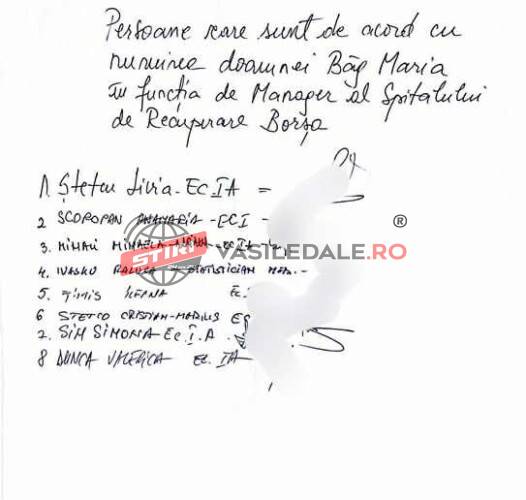 Persoane care sunt de acord cu
numirea doamnei Băg Maria
în funcția de Manager al Spitalului
de Recuperare Borșa
1. Ștețcu Livia - Ec. IA =
2 SCOPOPAN ANAMARIA - EC I -
®
3. MIHALI MIHAELA - Ec IA
STIRI VASILEDALE.RO
4. IVASKO RALUCA - STATISTICIAN MED. -
5. TIMIS ILEANA Ec.
6 STETCO CRISTIAN-MARIUS EC
7. SIM SIMONA Ec. I. A.
8 DUNCA VALERICA Ec. IA